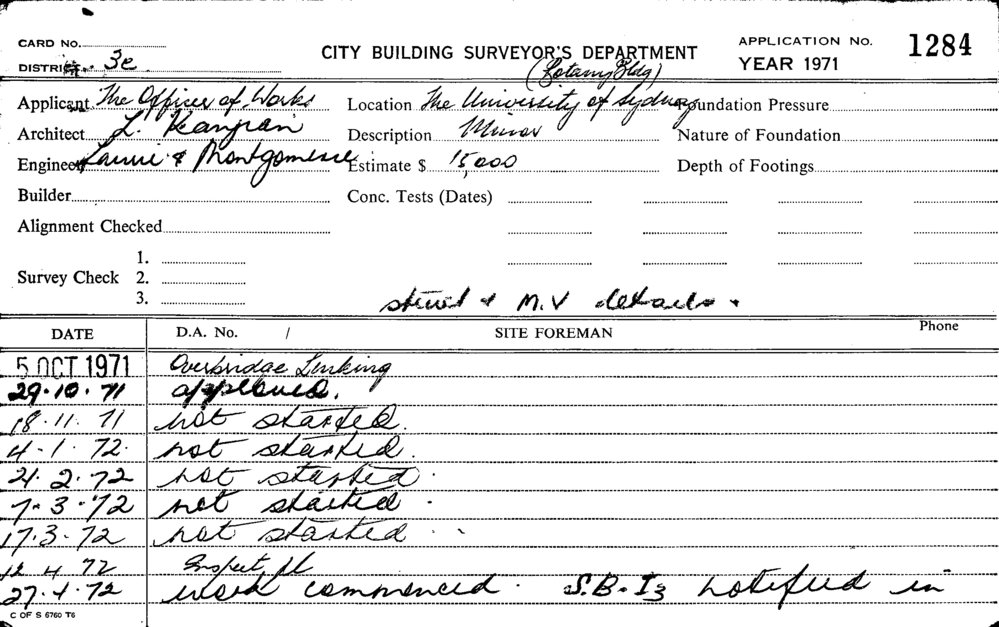 CARD No.
CITY BUILDING SURVEYOR'S DEPARTMENT
APPLICATION No. 1284
DISTRICT 3e
(Botany Bldg)
YEAR 1971
Applicant The Officer of Works
Location The University of Sydney
Foundation Pressure
Architect L.
Description Minor
Nature of Foundation
Engineer Laurie & Montgomerie
Estimate $ 15,000
Depth of Footings
Builder
Conc. Tests (Dates)
Alignment Checked
1.
Survey Check 2.
3.
struct & M.V details.
DATE D.A. No. / SITE FOREMAN Phone
5 OCT 1971 Overbridge Linking
29.10.71 approved.
18.11.71 not started.
4.1.72. not started.
21.2.72 not started.
7.3.72 not started.
17.3.72 not started.
12.4.72 Inspect pl
27.4.72 work commenced. S.B.I3 notified in
C OF S 6760 T6